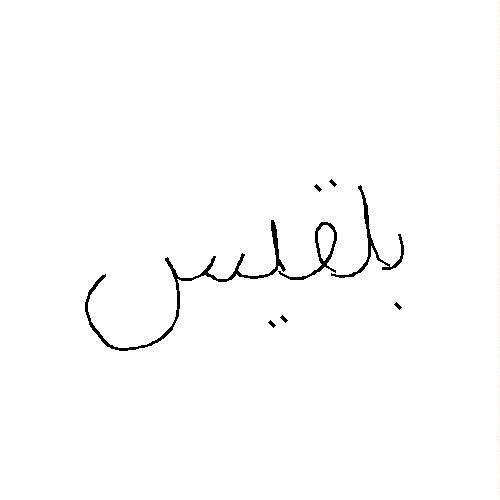 بلقيس